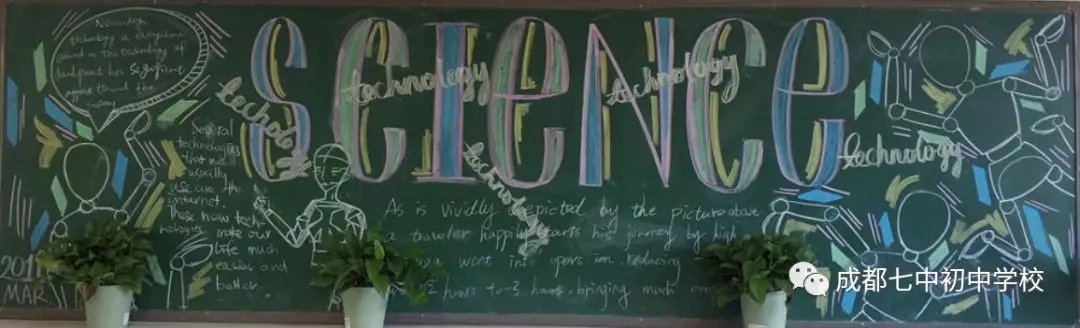 SCIENCE
technology
technology
technology
technology
technology
Nowadays
technology is everywhere
and in the technology of
has significant
toward the
Several
technologies
that we
usually
use are the
internet.
These new tech-
nologies make our
life much
easier and
better
As is vividly depicted by the picture above
a traveler happily starts his journey by high
went into
reducing
hours to 3 hours, bringing much
201
MAR.
成都七中初中学校